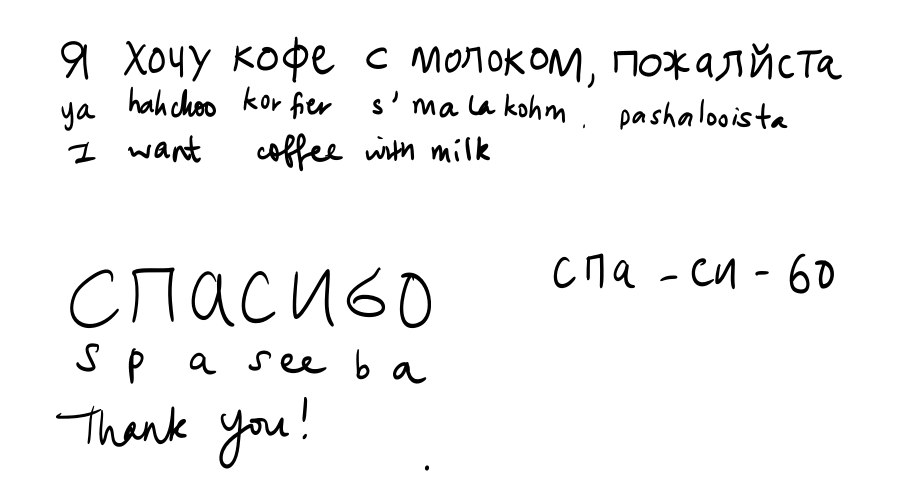 Я хочу кофе с молоком, пожалйста
ya hahchoo korfier s' malakohm. pashalooista
I want coffee with milk
спасибо
спа - си - бо
s p a see b a
Thank you!